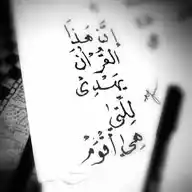 إِنَّ هَٰذَا
الْقُرْآنَ
يَهْدِي
لِلَّتِي
هِيَ أَقْوَمُ